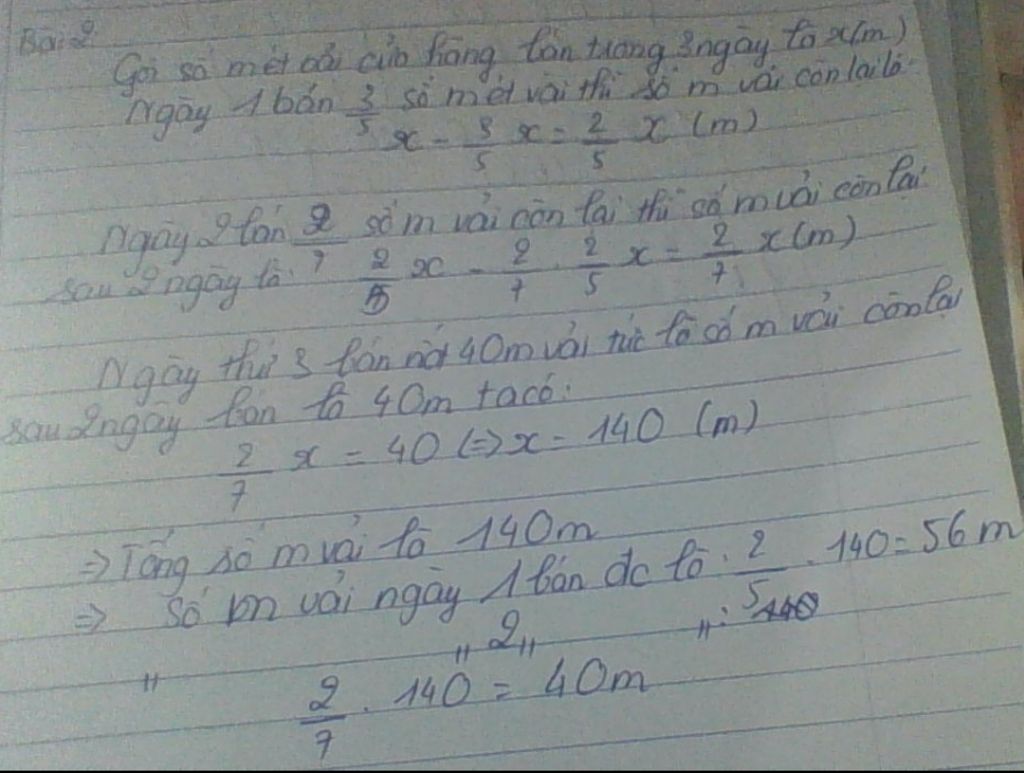 Bài 2
Gọi số mét vải cửa hàng bán trong 3 ngày là x(m)
Ngày 1 bán 3/5 số mét vải thì số m vải còn lại là:
x - 3/5 x = 2/5 x (m)
Ngày 2 bán 2/7 số m vải còn lại thì số m vải còn lại
sau 2 ngày là: 2/5 x - 2/7 . 2/5 x = 2/7 x (m)
Ngày thứ 3 bán nốt 40m vải tức là số m vải còn lại
sau 2 ngày bán là 40m ta có:
2/7 x = 40 <=> x = 140 (m)
=> Tổng số m vải là 140m
=> Số m vải ngày 1 bán đc là: 2/5 . 140 = 56 m
" " 2 " " :
2/7 . 140 = 40m